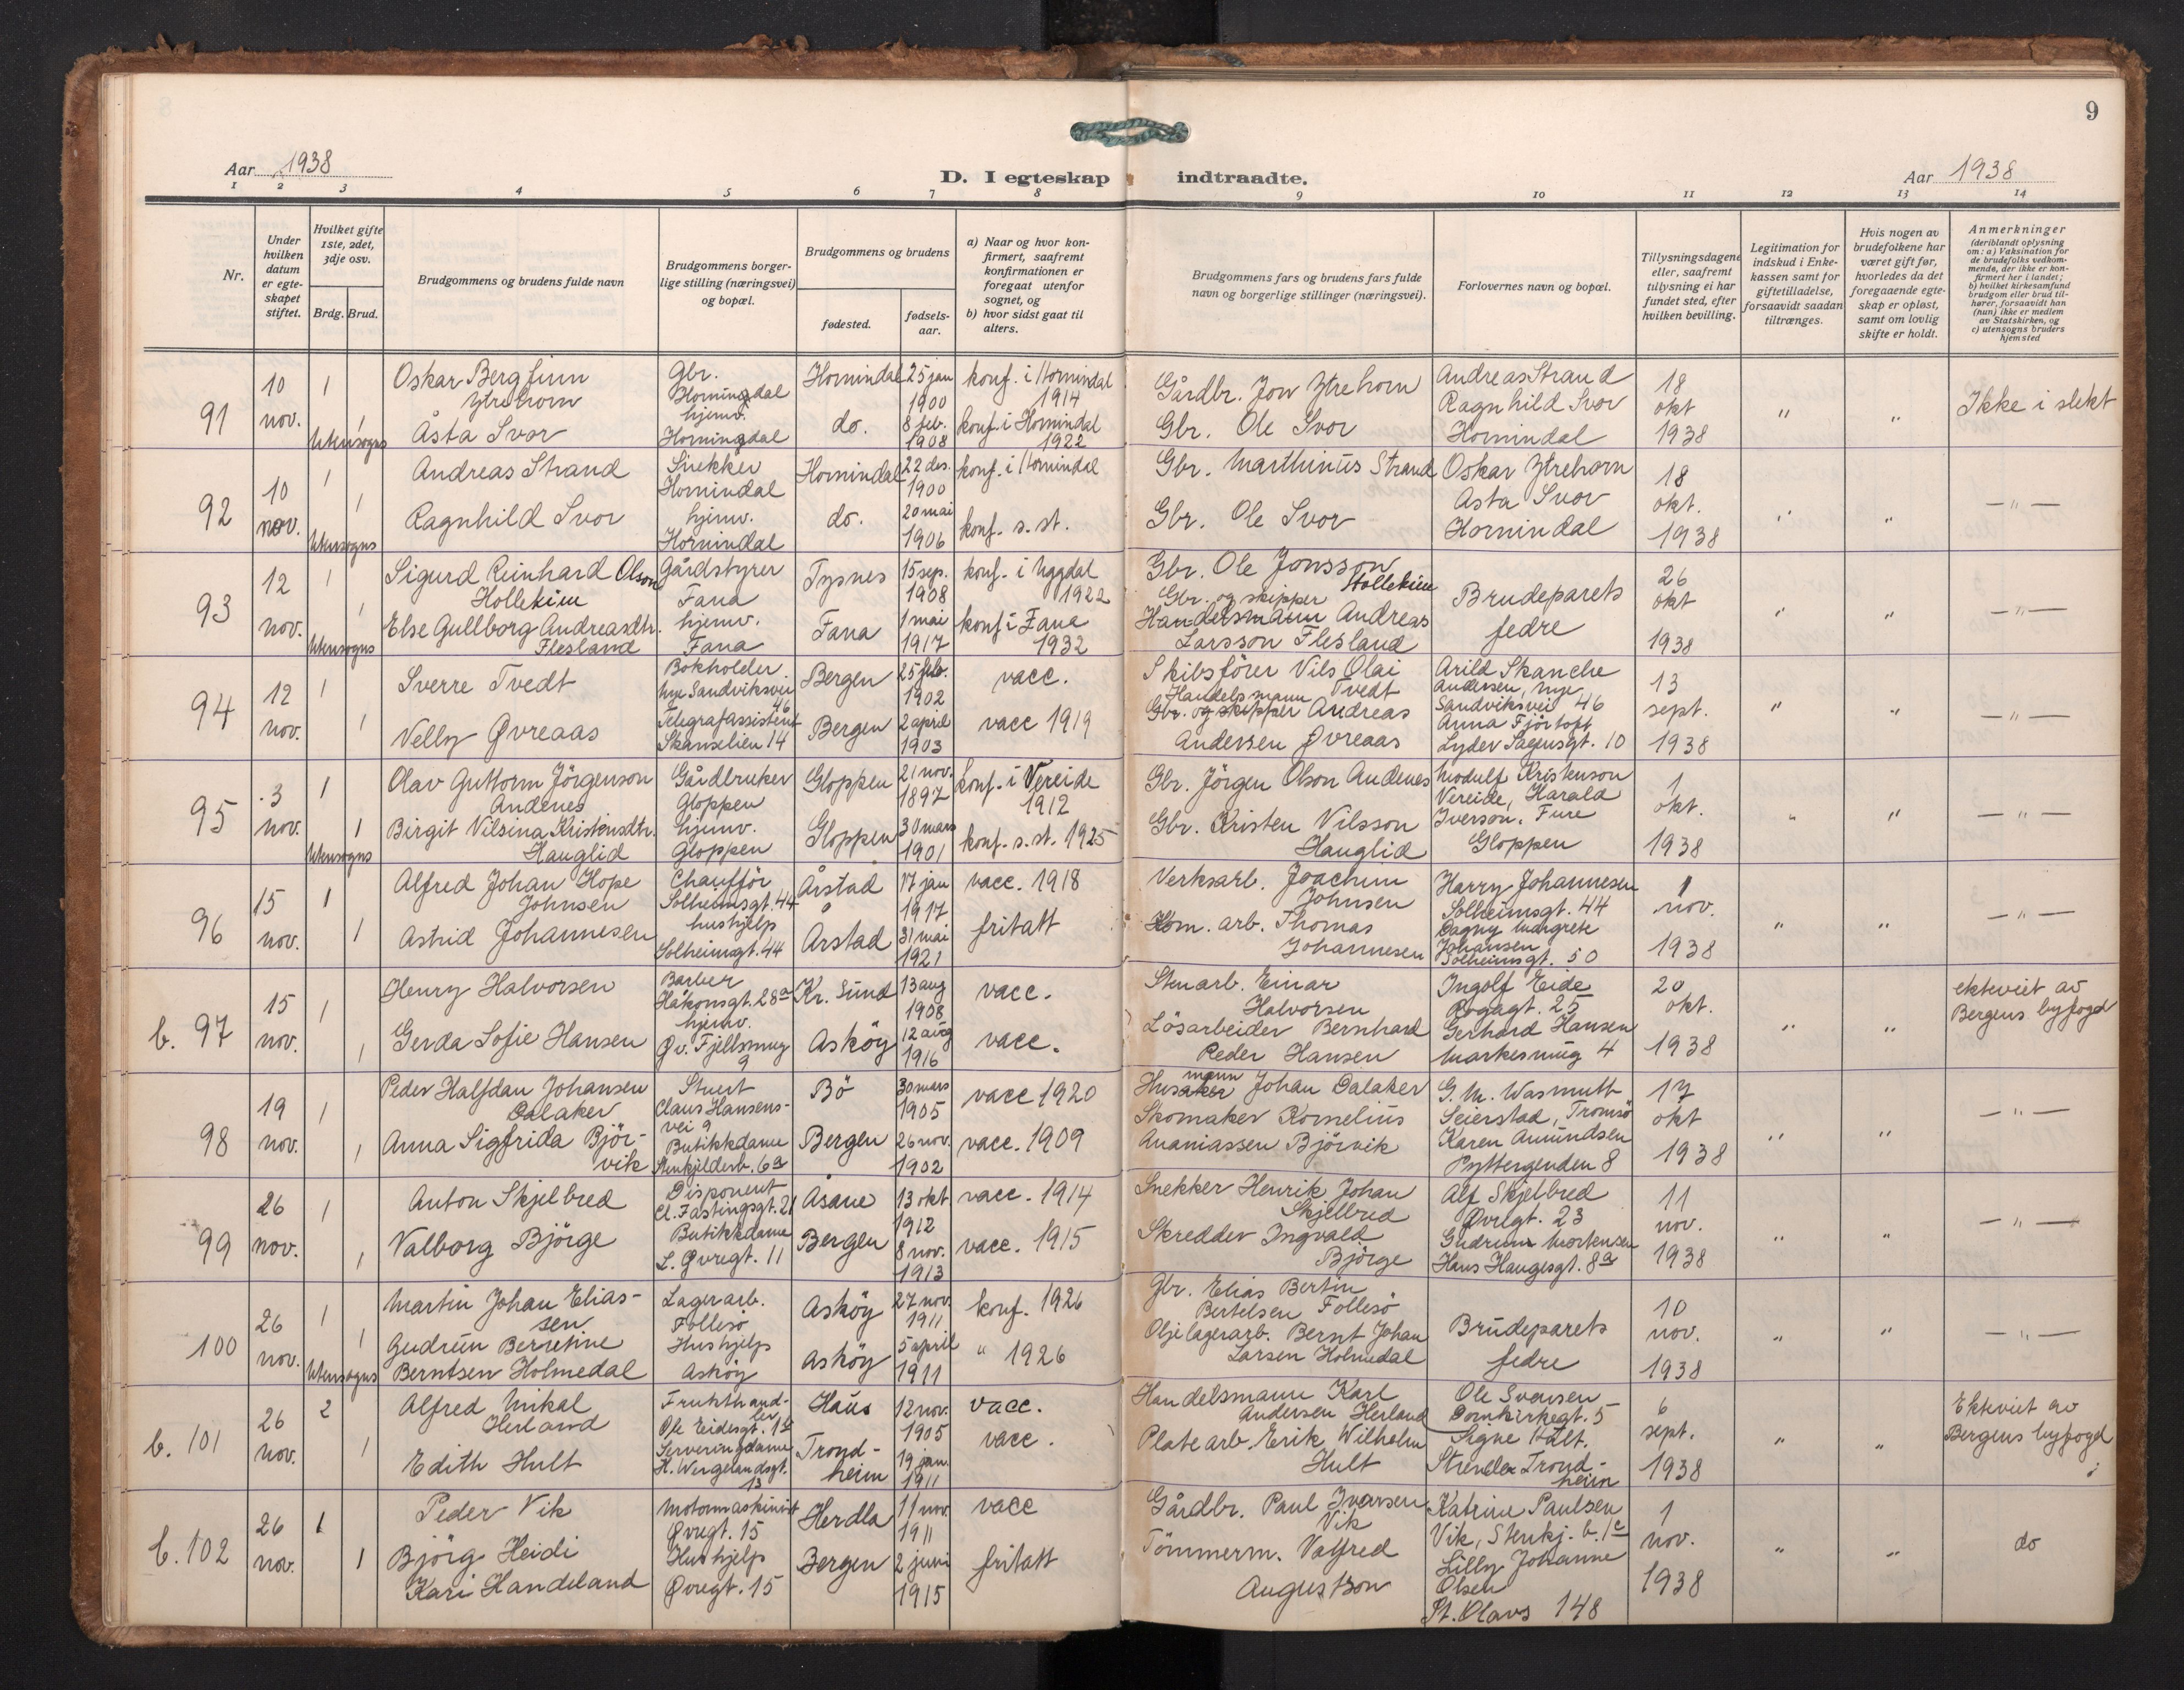 9
Aar 1938
D. I egteskap indtraadte.
Aar 1938
1 2 3 4 5 6 7 8 9 10 11 12 13 14
Nr.
Under hvilken datum er egte-skapet stiftet.
Hvilket gifte 1ste, 2det, 3dje osv.
Brdg. Brud.
Brudgommens og brudens fulde navn
Brudgommens borger-lige stilling (næringsvei) og bopæl.
Brudgommens og brudens
fødested.
fødsels-aar.
a) Naar og hvor kon-firmert, saafremt konfirmationen er foregaat utenfor sognet, og
b) hvor sidst gaat til alters.
Brudgommens fars og brudens fars fulde navn og borgerlige stillinger (næringsvei).
Forlovernes navn og bopæl.
Tillysningsdagene eller, saafremt tillysning ei har fundet sted, efter hvilken bevilling.
Legitimation for indskud i Enke-kassen samt for giftetilladelse, forsaavidt saadan tiltrænges.
Hvis nogen av brudefolkene har været gift før, hvorledes da det foregaaende egte-skap er opløst, samt om lovlig skifte er holdt.
Anmerkninger
(deriblandt oplysning om: a) Vaksination for de brudefolks vedkom-mende, der ikke er kon-firmert her i landet; b) hvilket kirkesamfund brudgom eller brud til-hører, forsaavidt han (hun) ikke er medlem av Statskirken, og c) utensogns bruders hjemsted
91
10 nov.
1
1
Utensogns
Oskar Bergfinn
Ytrehorn
Åsta Svor
Gbr.
Hornindal
hjemv.
Hornindal
Hornindal
do.
25 jan 1900
8 feb. 1908
konf. i Hornindal 1914
konf. i Hornindal 1922
Gårdbr. Jon Ytrehorn
Gbr. Ole Svor
Andreas Strand
Ragnhild Svor
Hornindal
18 okt 1938
"
"
Ikke i slekt
92
10 nov.
1
1
Utensogns
Andreas Strand
Ragnhild Svor
Snekker
Hornindal
hjemv.
Hornindal
Hornindal
do.
22 des. 1900
20 mai 1906
konf. i Hornindal
konf. s. st.
Gbr. Marthinus Strand
Gbr. Ole Svor
Oskar Ytrehorn
Asta Svor
Hornindal
18 okt. 1938
"
"
— " —
93
12 nov.
1
1
Utensogns
Sigurd Reinhard Olson
Hollekim
Else Gullborg Andreasdtr.
Flesland
Gårdstyrer
Fana
hjemv.
Fana
Tysnes
Fana
15 sep. 1908
1 mai 1917
konf. i Uggdal 1922
konf i Fana 1932
Gbr. Ole Jonsson
Hollekim
Gbr. og skipper
Handelsmann Andreas
Larsson Flesland
Brudeparets
fedre
26 okt 1938
"
"
— " —
94
12 nov.
1
1
Sverre Tvedt
Nelly Øvreaas
Bokholder
Nye Sandviksvei 46
Telegrafassistent
Skanselien 14
Bergen
Bergen
25 feb. 1902
2 april 1903
vacc.
vacc 1919
Skibsfører Nils Olai
Tvedt
Handelsmann
Gbr. og skipper Andreas
Andersen Øvreaas
Arild Skanche
Andersen, Nye
Sandviksvei 46
Anna Fjörtoft
Lyder Sagensgt. 10
13 sept. 1938
"
"
— " —
95
3 nov.
1
1
Utensogns
Olav Guttorm Jörgenson
Andenes
Birgit Nilsina Kristensdtr.
Hauglid
Gårdbruker
Gloppen
hjemv.
Gloppen
Gloppen
Gloppen
21 nov. 1897
30 mars 1901
konf. i Vereide 1912
konf. s. st. 1925
Gbr. Jörgen Olson Andenes
Gbr. Kristen Nilsson
Hauglid
Modulf Kristenson
Vereide, Harald
Iverson, Fure
Gloppen
1 okt. 1938
"
"
— " —
96
15 nov.
1
1
Alfred Johan Hope
Johnsen
Astrid Johannesen
Chaufför
Solheimsgt. 44
hushjelp
Solheimsgt. 44
Årstad
Årstad
17 jan 1917
31 mai 1921
vacc. 1918
fritatt
Verksarb. Joachim
Johnsen
Kom. arb. Thomas
Johannesen
Harry Johannesen
Solheimsgt. 44
Dagny Margrete
Johansen
Solheimsgt. 50
1 nov. 1938
"
"
— " —
b. 97
15 nov.
1
1
Henry Halvorsen
Gerda Sofie Hansen
Barber
Håkonsgt. 28a
hjemv.
Øv. Fjellsmug 9
Kr. Sund
Asköy
13 aug 1908
12 aug 1916
vacc.
vacc.
Stenarb. Einar
Halvorsen
Lösarbeider Bernhard
Peder Hansen
Ingolf Eide
Rogagt. 25
Gerhard Hansen
Markesmug 4
20 okt. 1938
"
"
ekteviet av
Bergens byfogd
98
19 nov.
1
1
Peder Halfdan Johansen
Dalaker
Anna Sigfrida Björ-
vik
Stuert
Claus Hansens-
vei 9
Butikkdame
Stenkjelderb. 6a
Bö
Bergen
30 mars 1905
26 nov. 1902
vacc 1920
vacc. 1909
Husmann Johan Dalaker
Skomaker Kornelius
Ananiassen Björvik
G. M. Wasmutt
Seierstad, Tromsö
Karen Amundsen
Pyttergrenden 8
17 okt 1938
"
"
— " —
99
26 nov.
1
1
Anton Skjelbred
Valborg Björge
Disponent
Cl. Fastingsgt. 21
Butikkdame
L. Øvregt. 11
Åsane
Bergen
13 okt 1912
8 nov. 1913
vacc. 1914
vacc. 1915
Snekker Henrik Johan
Skjelbred
Skredder Ingvald
Björge
Alf Skjelbred
Øvregt. 23
Gudrun Mortensen
Hans Haugesgt. 8a
11 nov. 1938
"
"
— " —
100
26 nov.
1
1
Utensogns
Martin Johan Elias-
sen
Gudrun Berntine
Berntsen Holmedal
Lagerarb.
Follesö
Hushjelp
Asköy
Asköy
Asköy
27 nov. 1911
5 april 1911
konf. 1926
" 1926
Gbr. Elias Bertin
Bertelsen Follesö
Oljelagerarb. Bernt Johan
Larsen Holmedal
Brudeparets
fedre
10 nov. 1938
"
"
— " —
b. 101
26 nov.
2
1
Alfred Mikal
Herland
Edith Hult
Frukthand-
ler
Ole Eidesgt. 1
Serveringsdame
H. Wergelandsgt. 13
Haus
Trond-
heim
12 nov. 1905
19 jan. 1911
vacc.
vacc.
Handelsmann Karl
Andersen Herland
Platearb. Erik Wilhelm
Hult
Ole Svensen
Domkirkegt. 5
Signe Hult.
Trond-
heim
6 sept. 1938
"
"
Ekteviet av
Bergens byfogd
b. 102
26 nov.
1
1
Peder Vik
Björg Heidi
Kari Handeland
Motormaskinist
Øvregt. 15
Hushjelp
Øvregt. 15
Herdla
Bergen
11 nov. 1911
2 juni 1915
vacc
fritatt
Gårdbr. Paul Iversen
Vik
Tömmerm. Valfred
Augustson
Katrine Paulsen
Vik, Stenkj. b. 1c
Lilly Johanne
Olsen
St. Olavs 148
1 nov. 1938
"
"
do